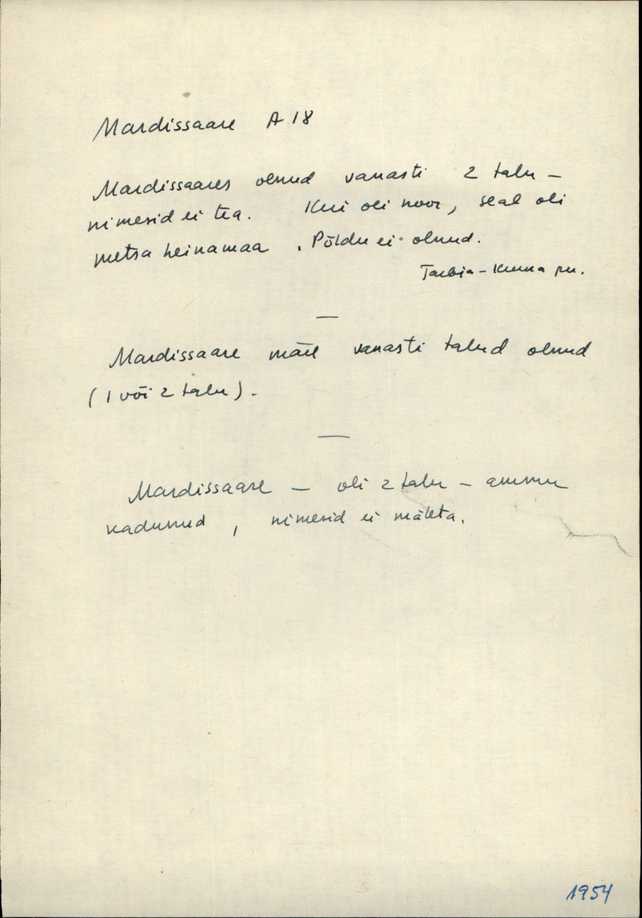 Mardissaare A 18
Mardissaares olnud vanasti 2 talu –
nimesid ei tea. Kui oli noor, seal oli
metsa heinamaa. Põldu ei olnud.
pu.
—
Mardissaare mäel vanasti talud olnud
(1 või 2 talu).
—
Mardissaare – oli 2 talu – ammu
kadunud, nimesid ei mäleta.
1954